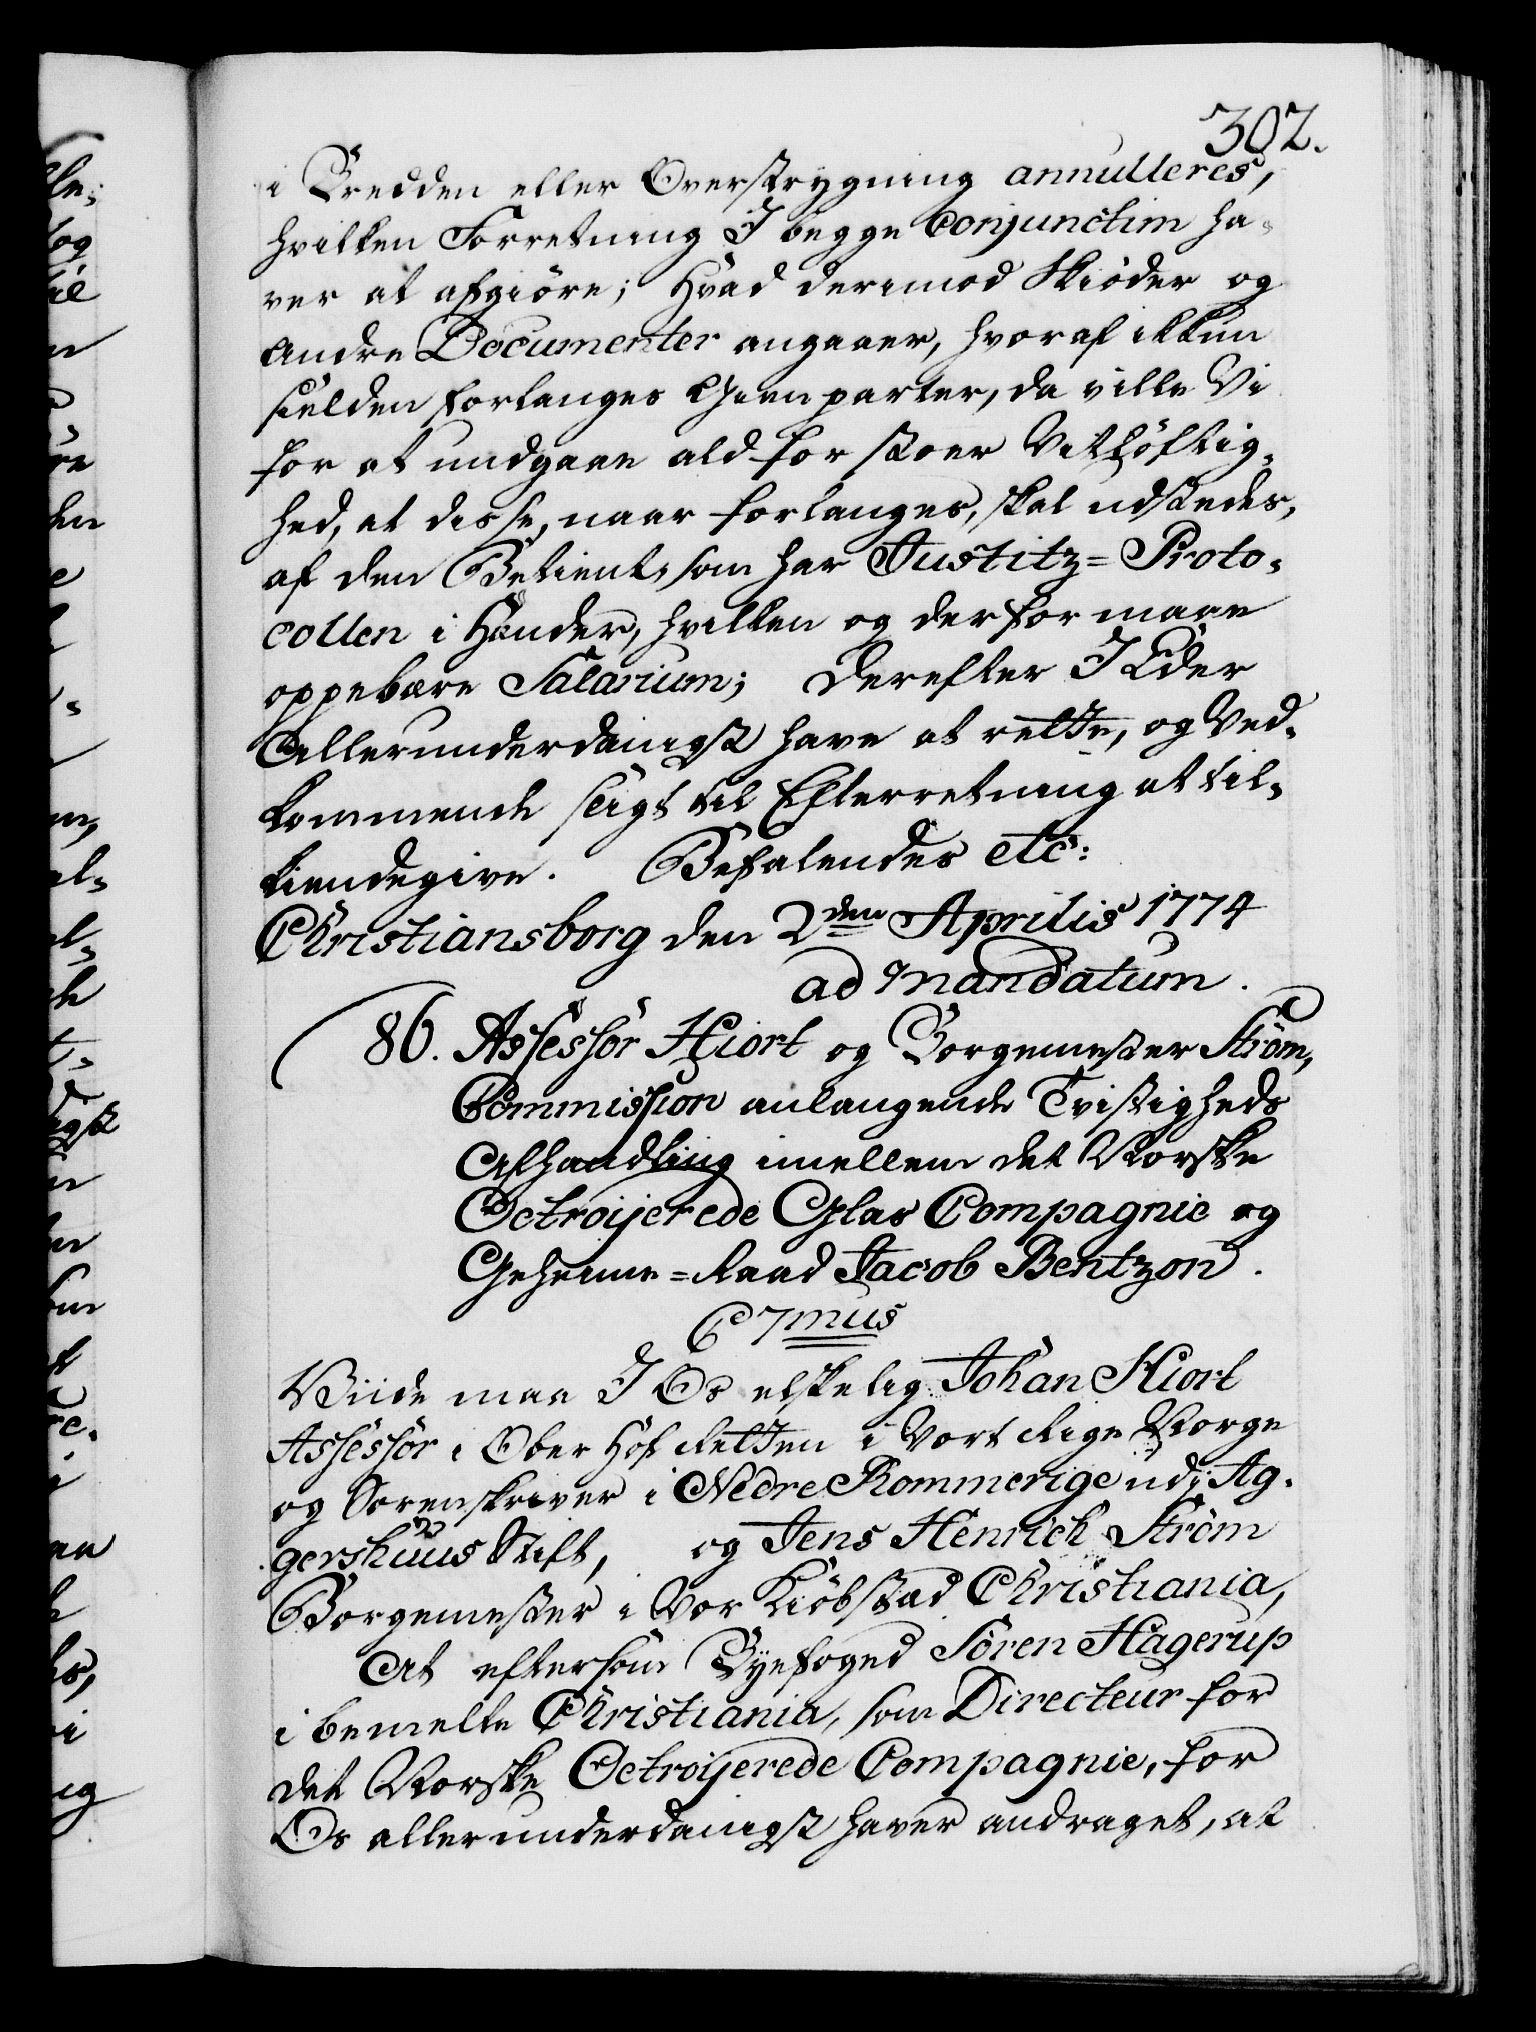 302.
i Bredden eller Overstrygning annulleres,
hvilken Forretning I begge Conjunctim ha-
ver at afgiøre; Hvad derimod Skiöder og
andre Documenter angaaer, hvoraf ikkun
sielden forlanges Gienparter, da ville Vi
for at undgaae ald for stoer Vitlöftig-
hed, at disse, naar forlanges, skal udstedes,
af den Betient, som har Justitz=Proto-
collen i Hænder, hvilken og derfor maae
oppebære Salarium; Derefter I Eder
allerunderdanigst have at rette, og Ved-
kommende sligt til Efterretning at til-
kiendegive. Befalendes etc:
Christiansborg den 2den Aprilis 1774
ad Mandatum.
86. Assessor Hiort og Borgemester Ström,
Commission anlangende Tvistigheds
Afhandling imellem det Norske
Octroijerede Glas Compagnie og
Geheime=Raad Jacob Bentzon.
C 7mus
Viide maa I Os elskelig Johan Hiort
Assessor i Ober Hof Retten i Vort Rige Norge
og Sorenskriver i Nedre Rommerige udi Ag-
gershuus Stift, og Jens Henrich Ström
Borgemester i Vor Kiöbstad Christiania,
At eftersom Byefoged Sören Hagerup
i bemelte Christiania, som Directeur for
det Norske Octroijerede Compagnie, for
Os allerunderdanigst haver andraget, at